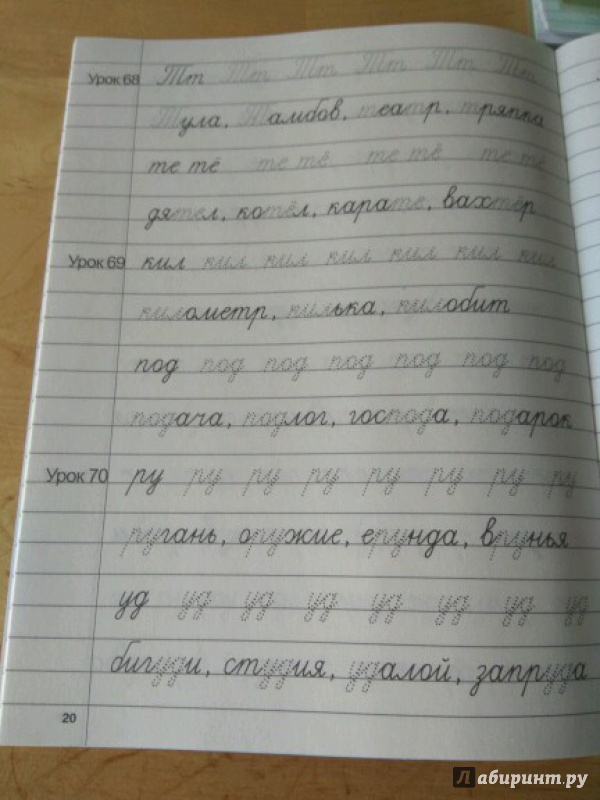 Урок 68 Тт Тт Тт Тт Тт Тт
Тула, Тамбов, театр, тряпка
те тё те тё те тё те тё
дятел, котёл, карате, вахтёр
Урок 69 кил кил кил кил кил кил кил
километр, килька, килобит
под под под под под под под
подача, подлог, господа, подарок
Урок 70 ру ру ру ру ру ру ру ру
ругань, оружие, ерунда, врунья
уд уд уд уд уд уд уд уд
бигуди, студия, удалой, запруда
20
Лабиринт.ру